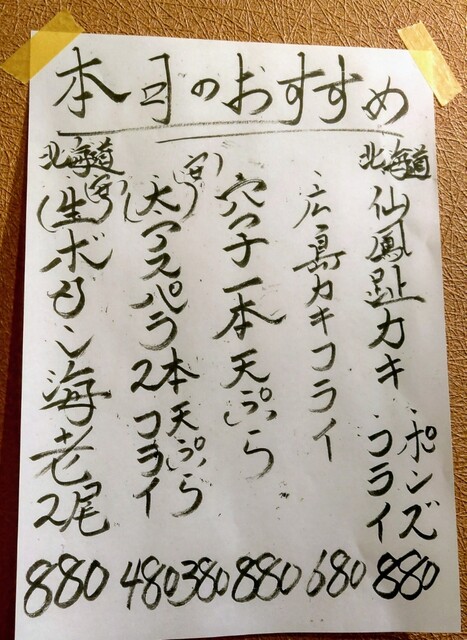 本日のおすすめ
北海道
仙鳳趾カキ
ポンズ
フライ
880
広島カキフライ
680
穴子一本天ぷら
880
(太)アスパラ2本
天ぷら
フライ
380
480
北海道
(生)ボタン海老2尾
880